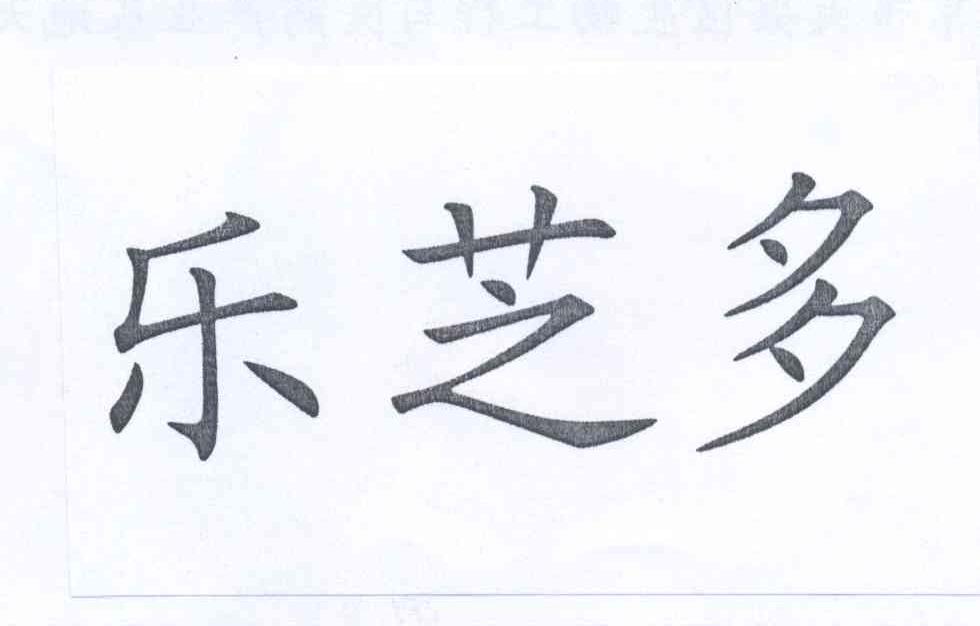 乐芝多